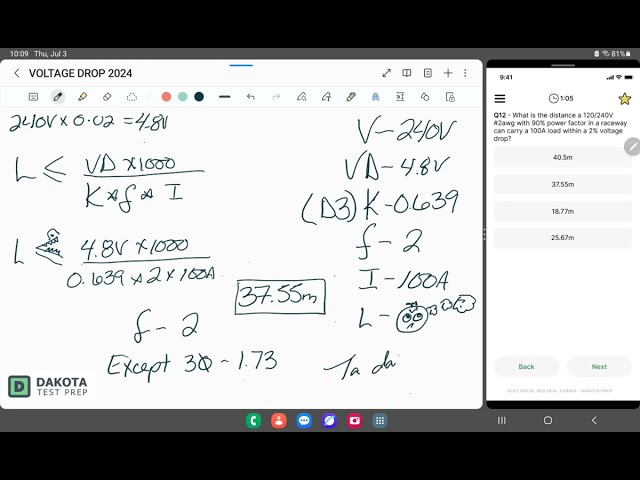 10:09 Thu, Jul 3
81%
VOLTAGE DROP 2024
240V x 0.02 = 4.8V
L ≤ VD x 1000
K * f * I
L ≤ 4.8V x 1000
0.639 x 2 x 100A
37.55m
f - 2
Except 3Ø - 1.73
V - 240V
VD - 4.8V
(D3) K - 0.639
f - 2
I - 100A
L -
Ta da
D DAKOTA
TEST PREP
9:41
1:05
Q12 - What is the distance a 120/240V
#2awg with 90% power factor in a raceway
can carry a 100A load within a 2% voltage
drop?
40.5m
37.55m
18.77m
25.67m
Back Next
ELECTRICAL RED SEAL EXAM - DAKOTA PREP